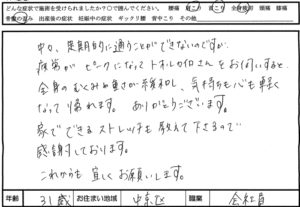 どんな症状で施術を受けられましたか？○で囲んでください。 腰痛 肩こり 首こり 全身疲労 頭痛 膝痛
骨盤の歪み 出産後の症状 妊娠中の症状 ギックリ腰 背中こり その他
中々、定期的に通うことができないのですが、
疲労がピークになってトオルカイロさんをお伺いすると、
全身のむくみや重さが緩和し、気持ちも心も軽く
なって帰れます。ありがとうございます。
家でできるストレッチも教えて下さるので
感謝しております。
これからも宜しくお願いします。
年齢 31歳 お住まい地域 中京区 職業 会社員